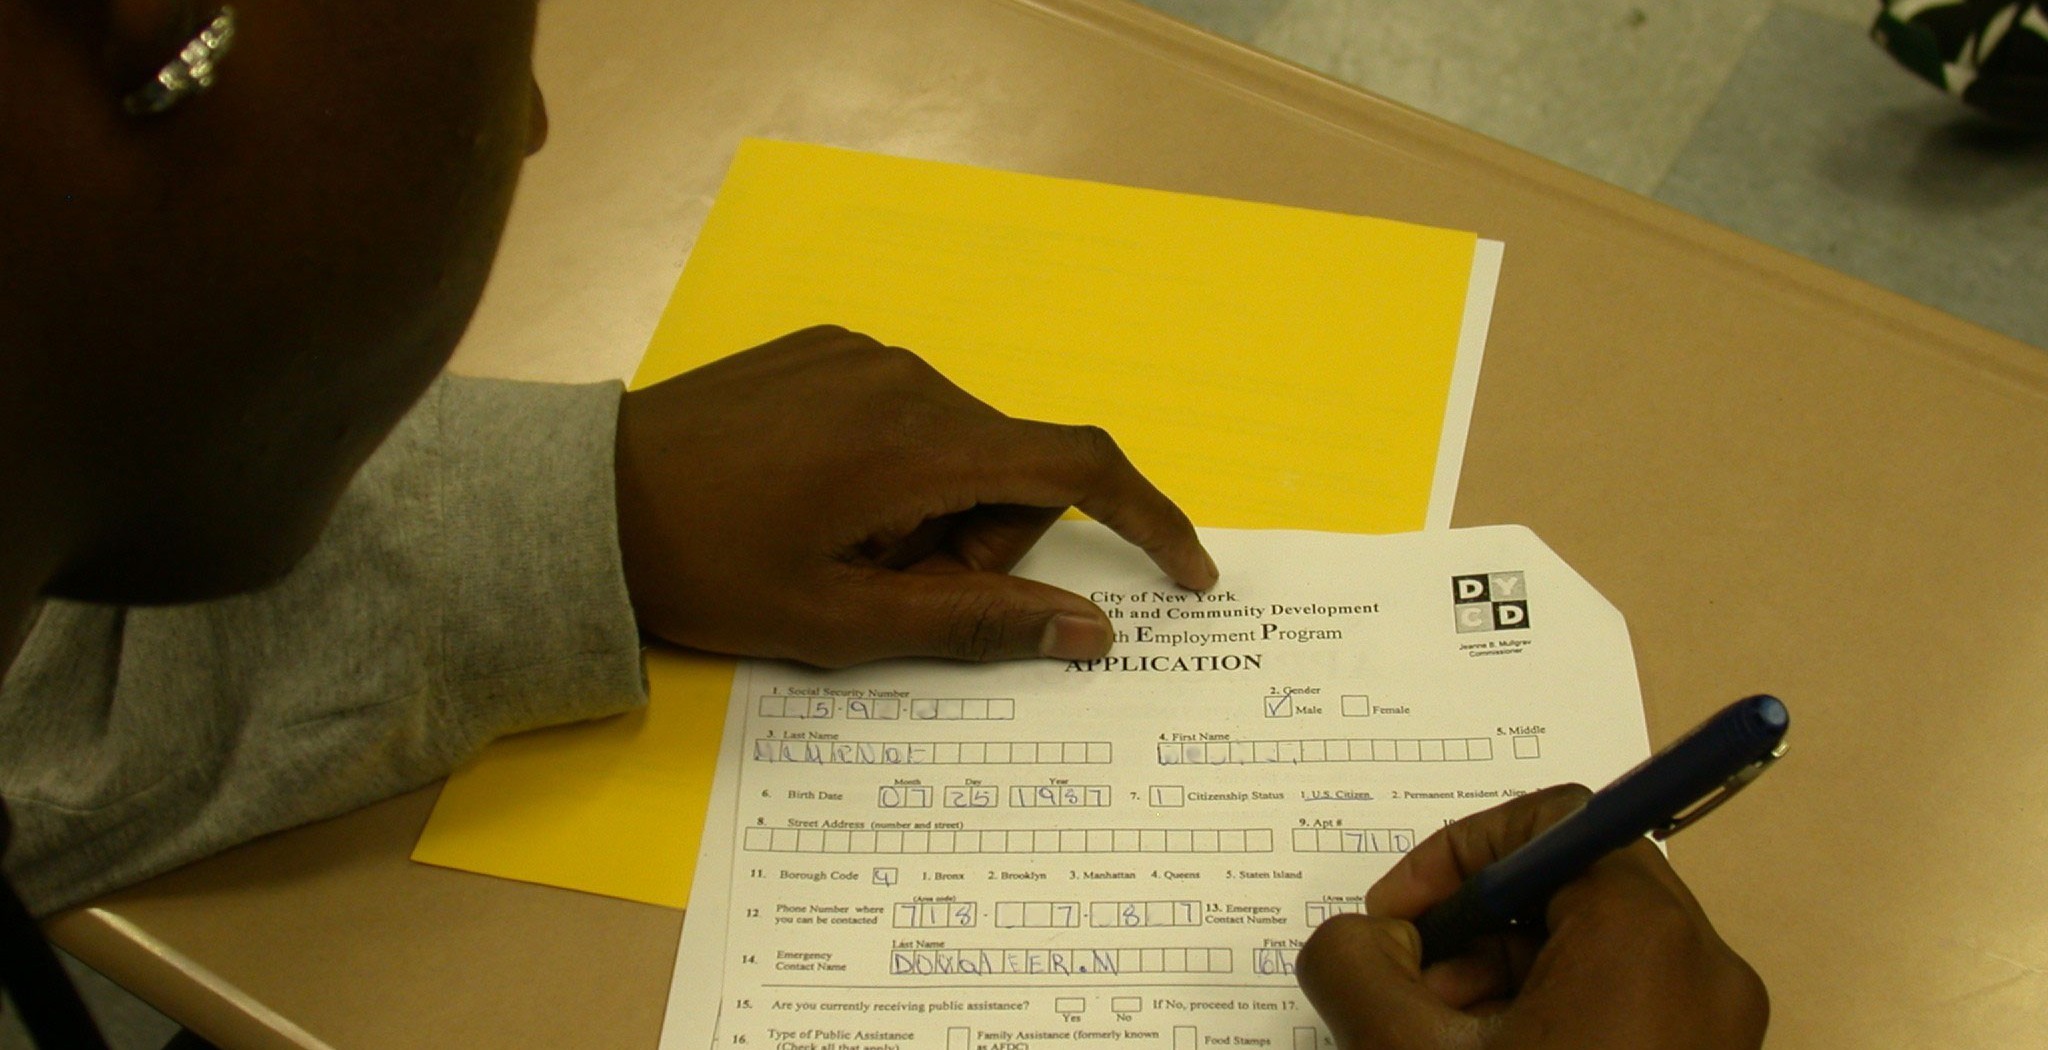 City of New York
th and Community Development
th Employment Program
APPLICATION
DYCD
Jeanne B. Mullgrav
Commissioner
1. Social Security Number
5 - 9
2. Gender
✓ Male Female
3. Last Name
4. First Name
5. Middle
Month Day Year
6. Birth Date 07 25 1987
7. 1 Citizenship Status 1. U.S. Citizen 2. Permanent Resident Alien
8. Street Address (number and street)
9. Apt # 710
10
11. Borough Code 4 1. Bronx 2. Brooklyn 3. Manhattan 4. Queens 5. Staten Island
(Area code)
12. Phone Number where you can be contacted 718 - 7 - 8 7
(Area code)
13. Emergency Contact Number 71
Last Name First Na
14. Emergency Contact Name
15. Are you currently receiving public assistance? Yes No If No, proceed to item 17.
16. Type of Public Assistance Family Assistance (formerly known Food Stamps S
(Check all that apply) as AFDC)